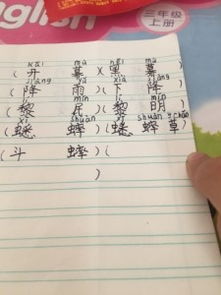 English
三年级
上册
kāi mù hēi mù
(开 幕)(黑 幕
jiàng yǔ xià jiàng
(降 雨)(下 降
lí mín lí míng
(黎 民)(黎 明
xī shuài xī shuài cǎo
(蟋 蟀)(蟋 蟀 草)
(斗 蟀)(
)